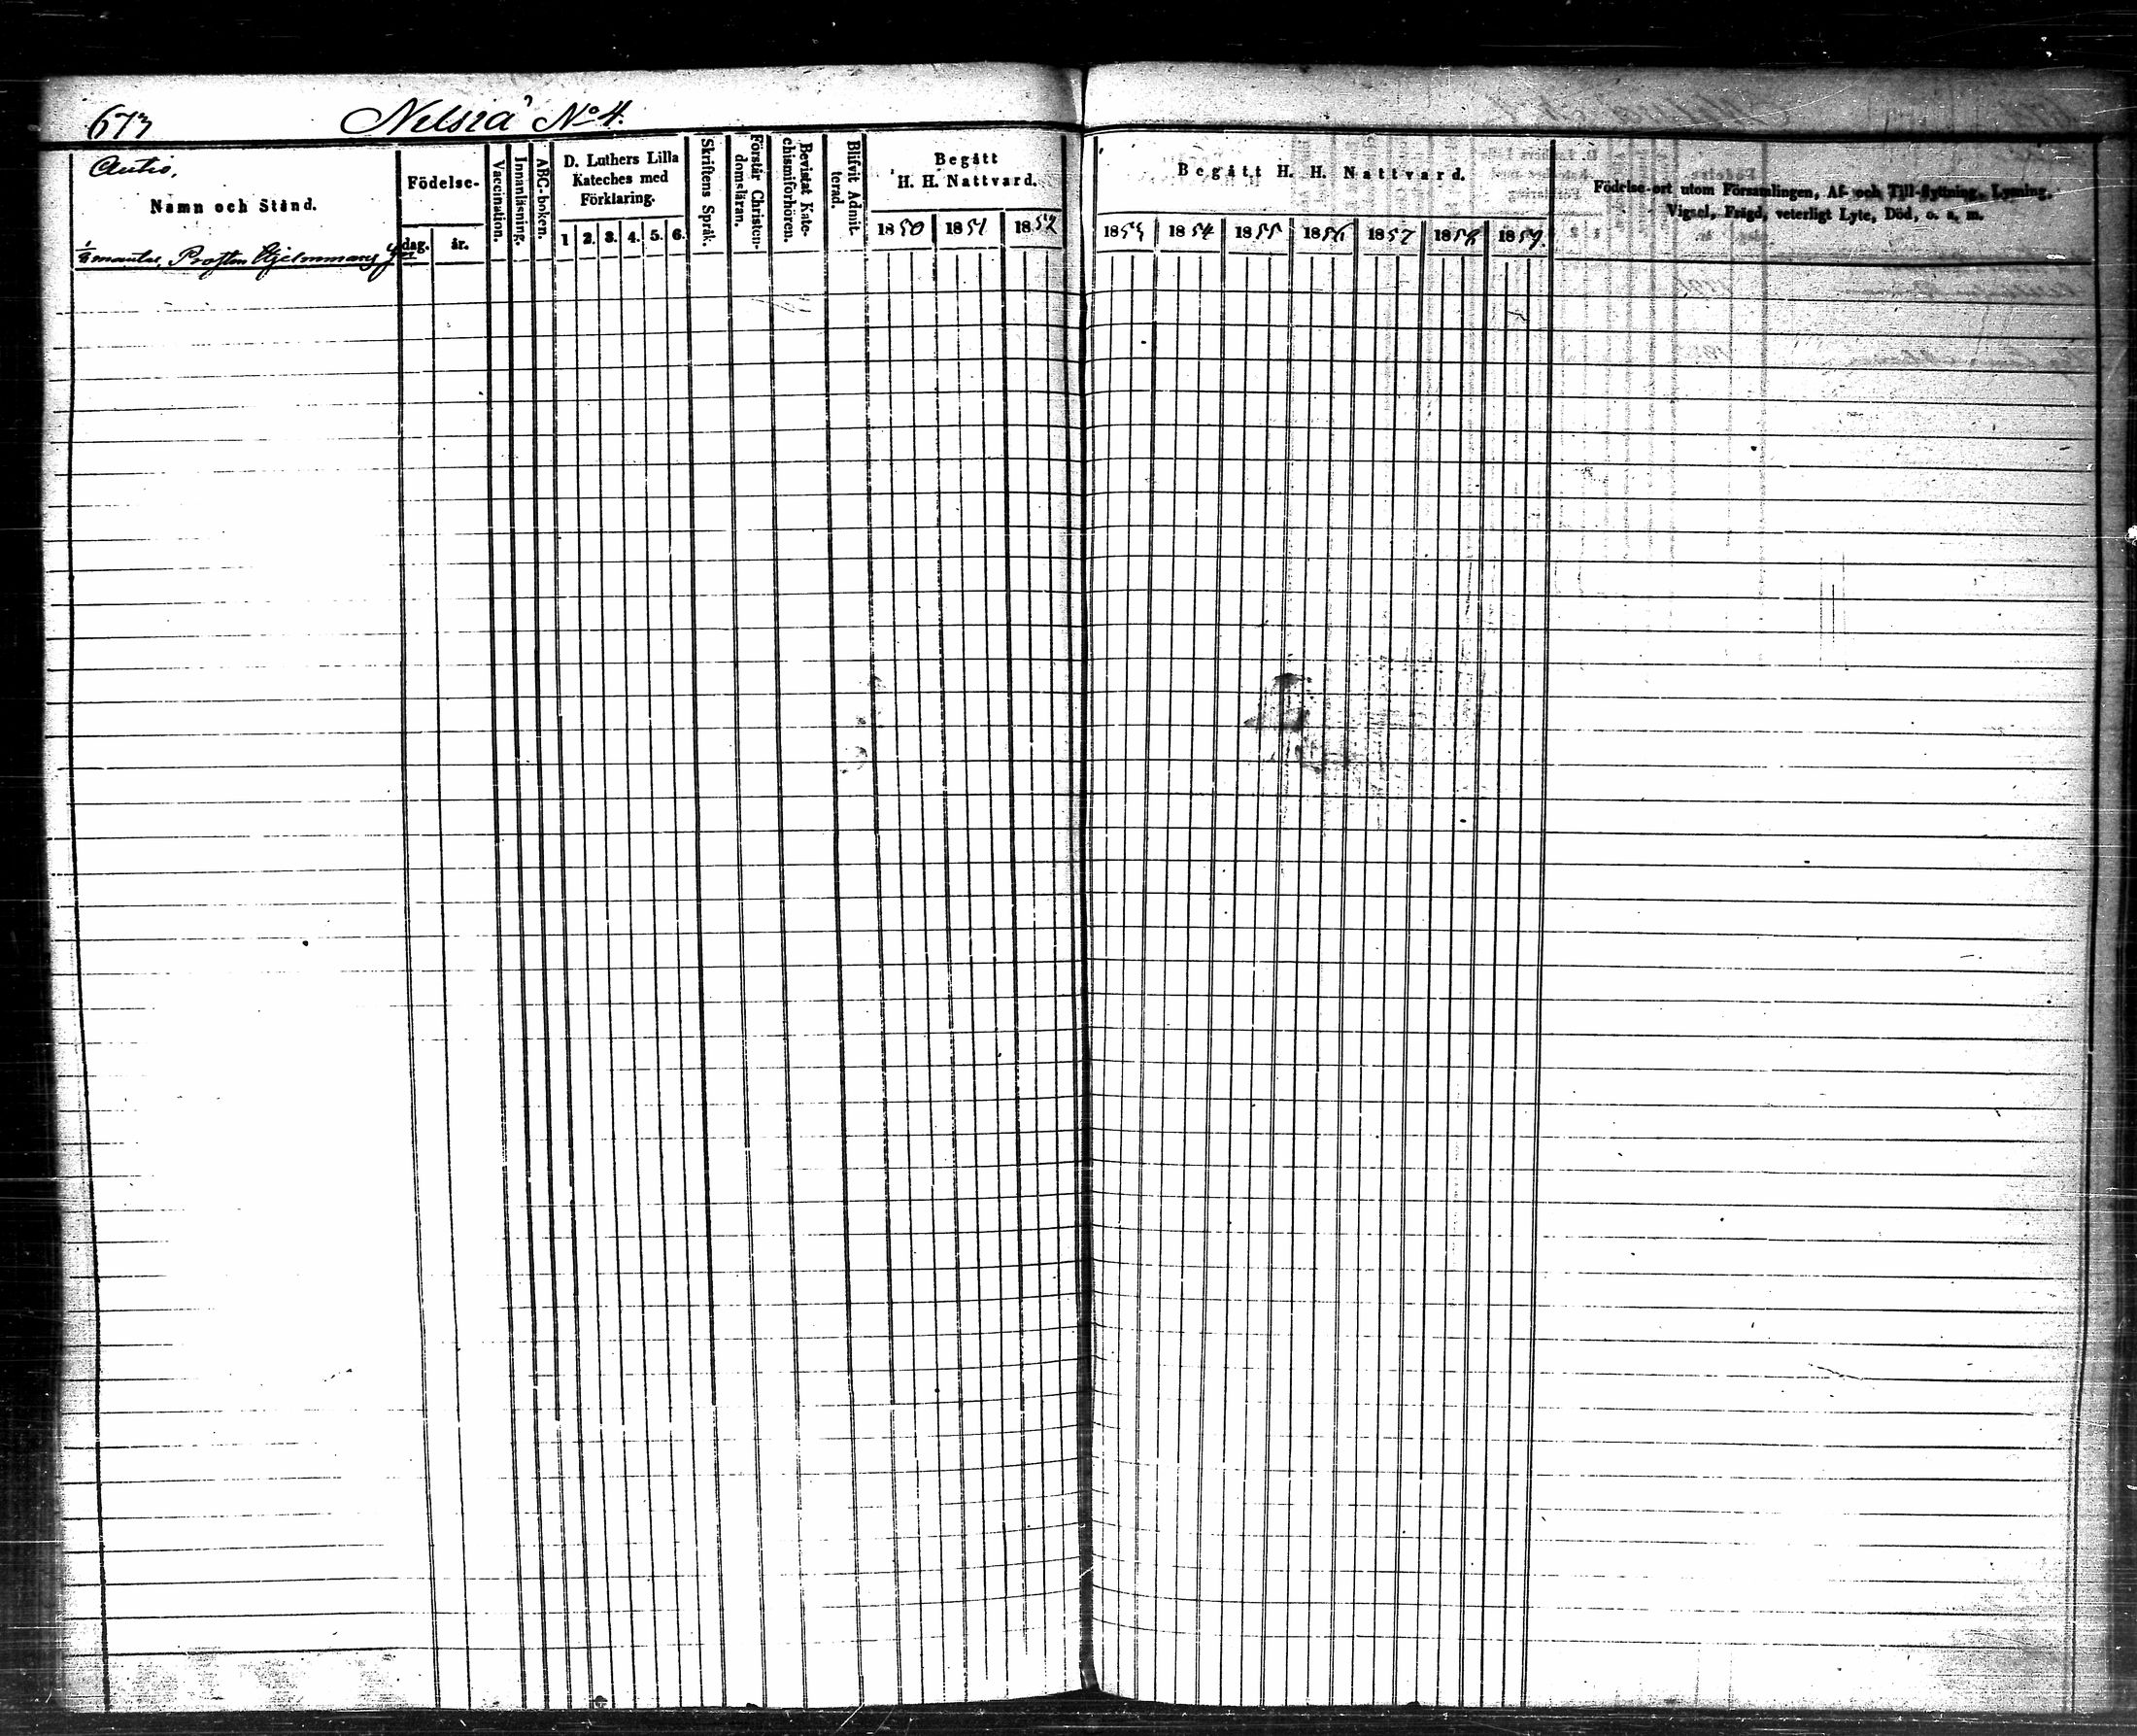 673
Nelsiä No 4.
Autio,
Namn och Stånd.
1/3 mantal, Prosten Hjelmmans
Födelse-
dag. år.
Vaccination.
Innanläsning.
ABC-boken.
D. Luthers Lilla
Kateches med
Förklaring.
1 2. 3. 4. 5. 6.
Skriftens Språk.
Förstår Christen-
domsläran.
Bevistat Kate-
chismiförhören.
Blifvit Admit-
terad.
Begått
H. H. Nattvard.
1850 1851 1852
Begått H. H. Nattvard.
1853 1854 1855 1856 1857 1858 1859
Födelse-ort utom Församlingen, Af- och Till-flyttning, Lysning,
Vigsel, Frägd, veterligt Lyte, Död, o. s. m.